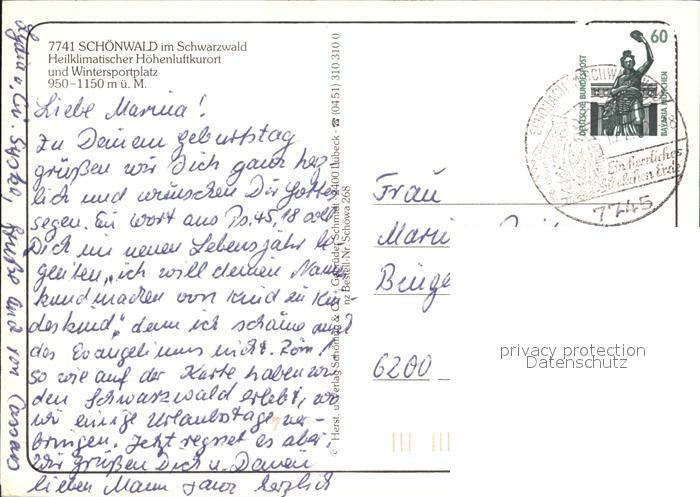 7741 SCHÖNWALD im Schwarzwald
Heilklimatischer Höhenluftkurort
und Wintersportplatz
950–1150 m ü. M.
Liebe Marina!
Zu Deinem geburtstag
grüßen wir Dich ganz herz
lich und wünschen Dir Gottes
segen. Ein Wort aus Ps. 45, 18 soll
Dich im neuen Lebensjahr be
gleiten, „ich will deinen Namen
kundmachen von Kind zu Kin
deskind", denn ich schäme mich
des Evangeliums nicht. Röm 1
so wie auf der Karte haben wir
den Schwarzwald erlebt, wo
wir einige Urlaubstage ver-
bringen. Jetzt regnet es aber.
Wir grüßen Dich u. Deinen
lieben Mann ganz herzlich
Grüße auch von
© Herst. u. Verlag Schöning & Co + Gebrüder Schmidt · 2400 Lübeck · ☎ (0451) 310 310 0
Bestell-Nr. Schowa 268
60
DEUTSCHE BUNDESPOST
BAVARIA MÜNCHEN
Ein herrliches
Stückchen Erde
7745
Frau
Mari
Binge
6200
privacy protection
Datenschutz